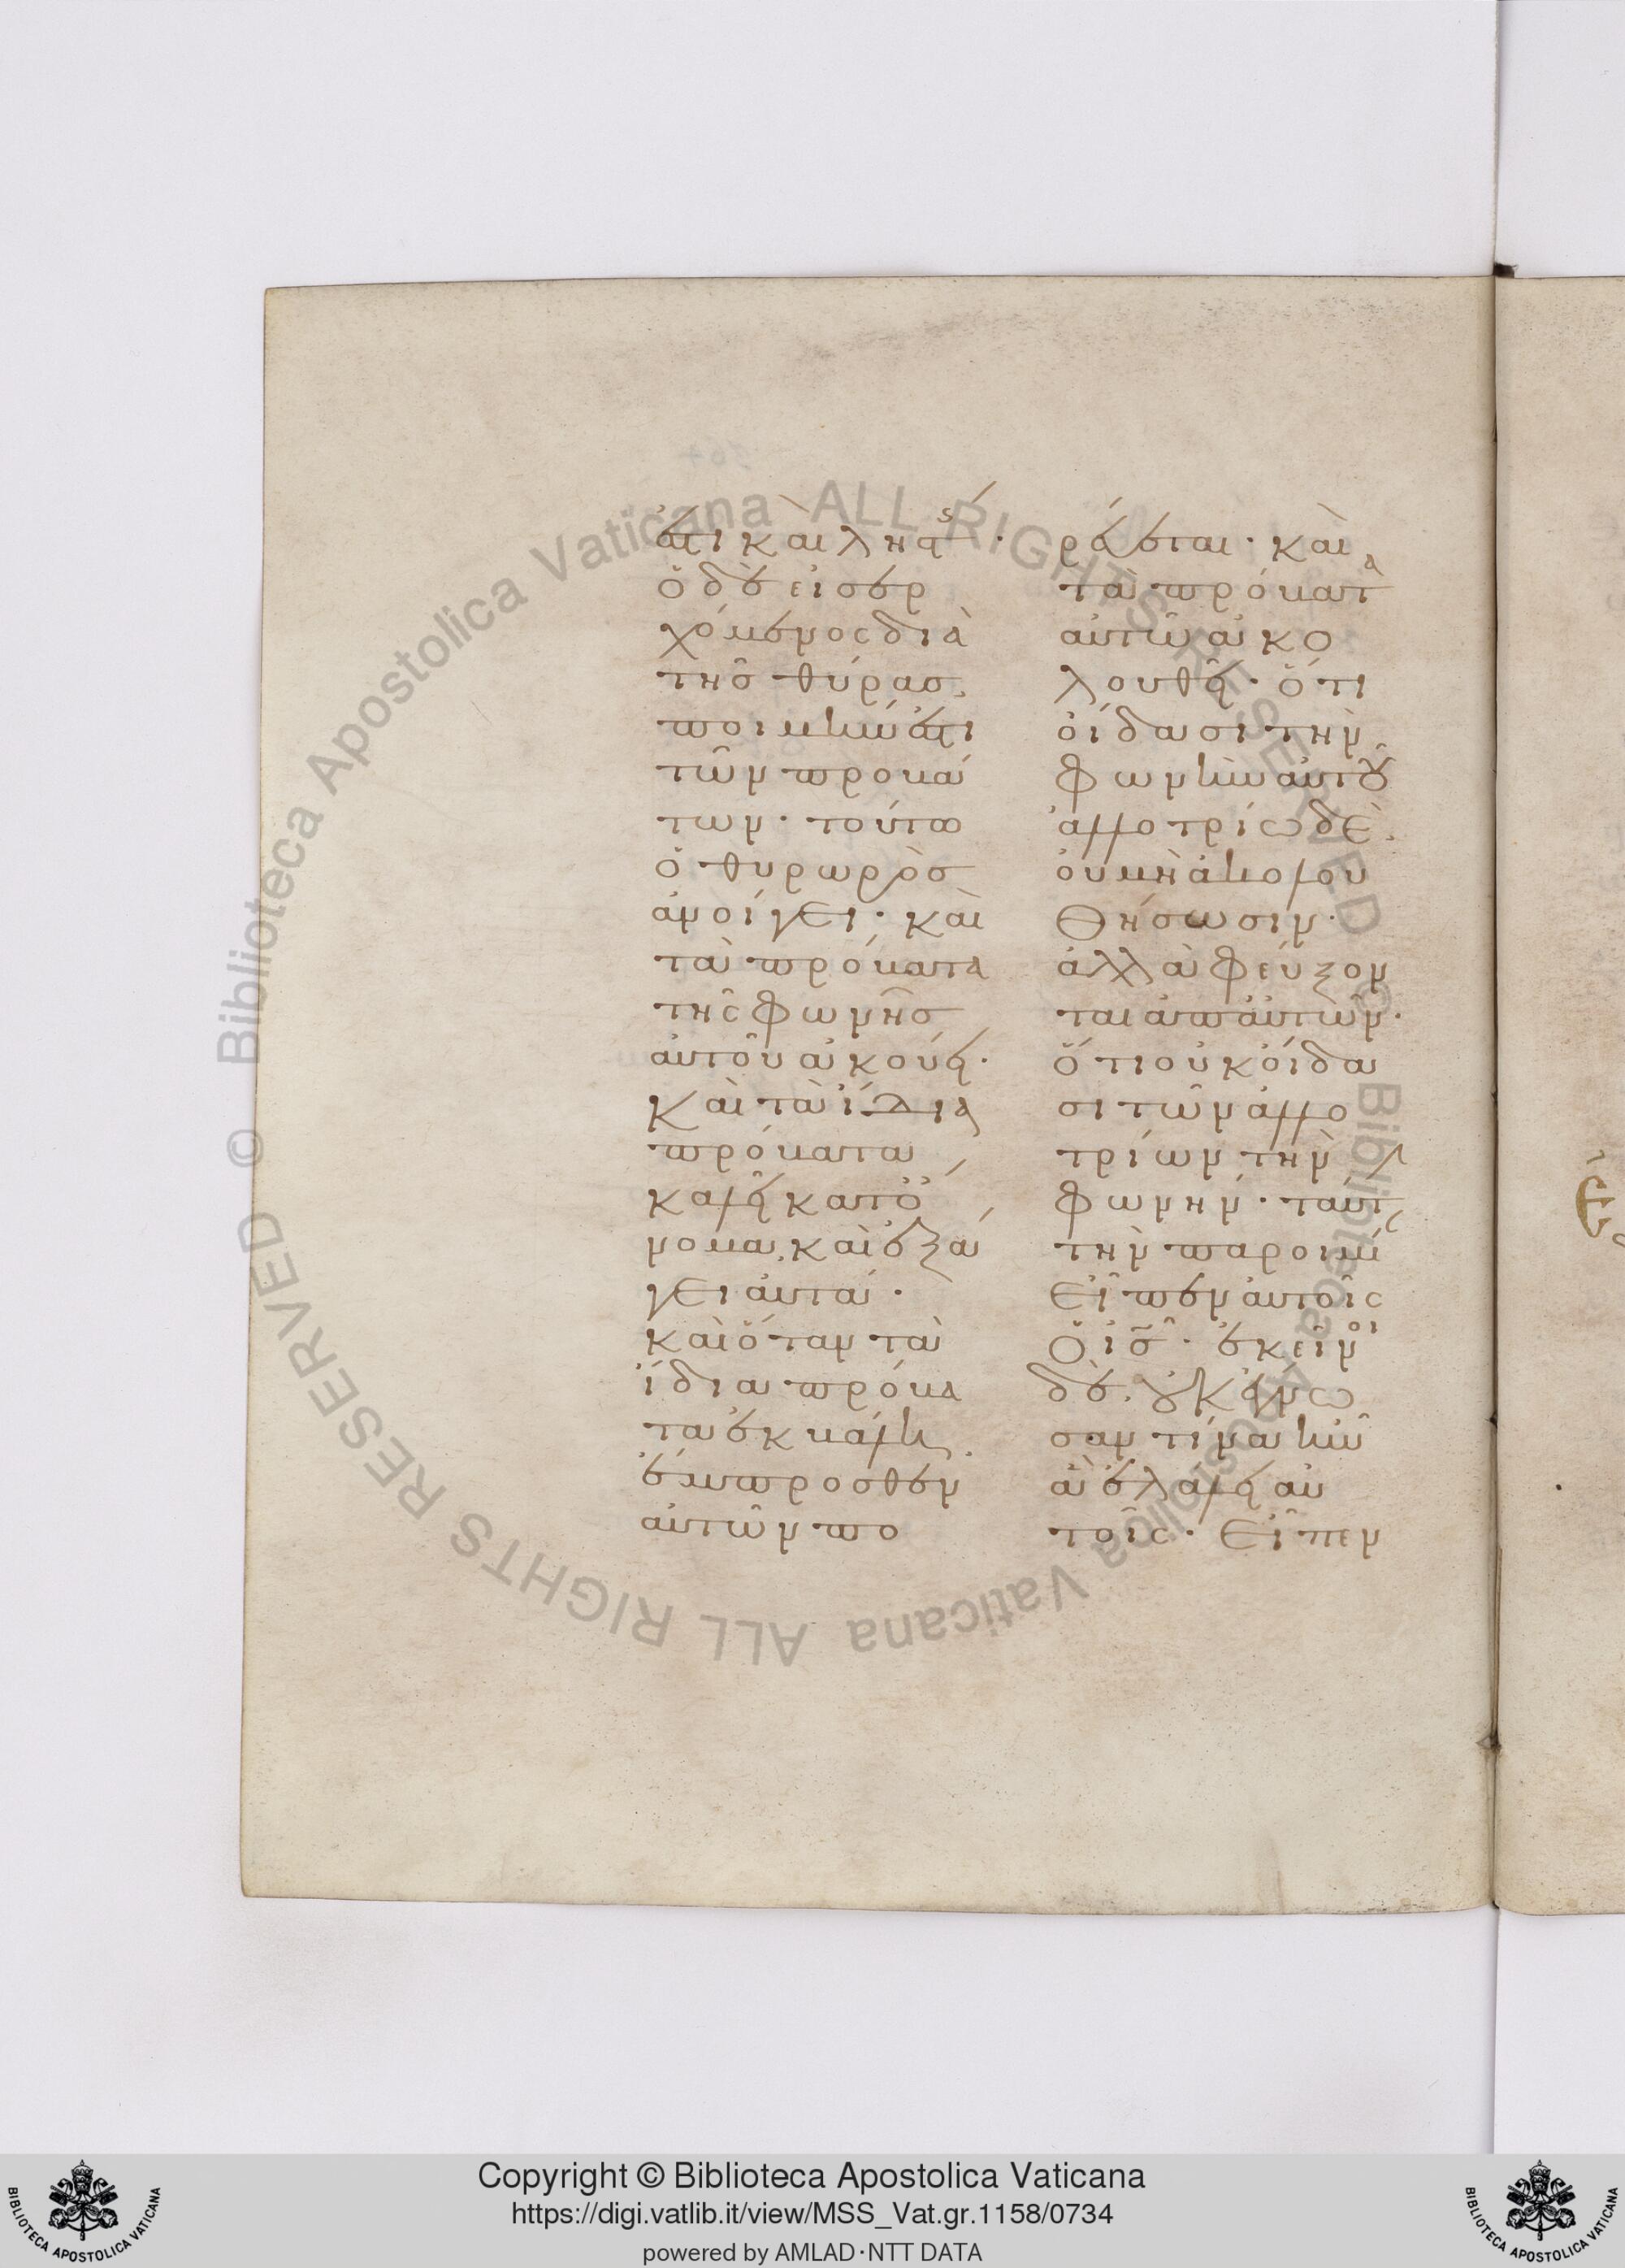 ἐστι καὶ ληστής·
ὁ δὲ εἰσερ
χόμενος διὰ
τῆς θύρας,
ποιμήν ἐστι
τῶν προβά
των· τούτω
ὁ θυρωρὸς
ἀνοίγει· καὶ
τὰ πρόβατα
τῆς φωνῆς
αὐτοῦ ἀκούει·
καὶ τὰ ἴδια
πρόβατα
καλεῖ κατ' ὄ
νομα, καὶ ἐξά
γει αὐτά·
καὶ ὅταν τὰ
ἴδια πρόβα
τα ἐκβάλη,
ἔμπροσθεν
αὐτῶν πο
ρεύεται· καὶ
τὰ πρόβατα
αὐτῶ ἀκο
λουθεῖ· ὅτι
οἴδασι τὴν
φωνὴν αὐτοῦ
ἀλλοτρίω δὲ,
οὐ μὴ ἀκολου
θήσωσιν·
ἀλλὰ φεύξον
ται ἀπ' αὐτῶν·
ὅτι οὐκ οἴδα
σι τῶν ἀλλο
τρίων τὴν
φωνήν· ταύτ
τὴν παροιμί
εἶπεν αὐτοῖς
ὁ ἰς· ἐκεῖνοι
δὲ, οὐκ ἔγνω
σαν τίνα ἦν
ἃ ἐλάλει αὐ
τοῖς· εἶπεν
Copyright © Biblioteca Apostolica Vaticana
https://digi.vatlib.it/view/MSS_Vat.gr.1158/0734
powered by AMLAD·NTT DATA
BIBLIOTECA APOSTOLICA VATICANA
BIBLIOTECA APOSTOLICA VATICANA
© Biblioteca Apostolica Vaticana ALL RIGHTS RESERVED
© Biblioteca Apostolica Vaticana ALL RIGHTS RESERVED